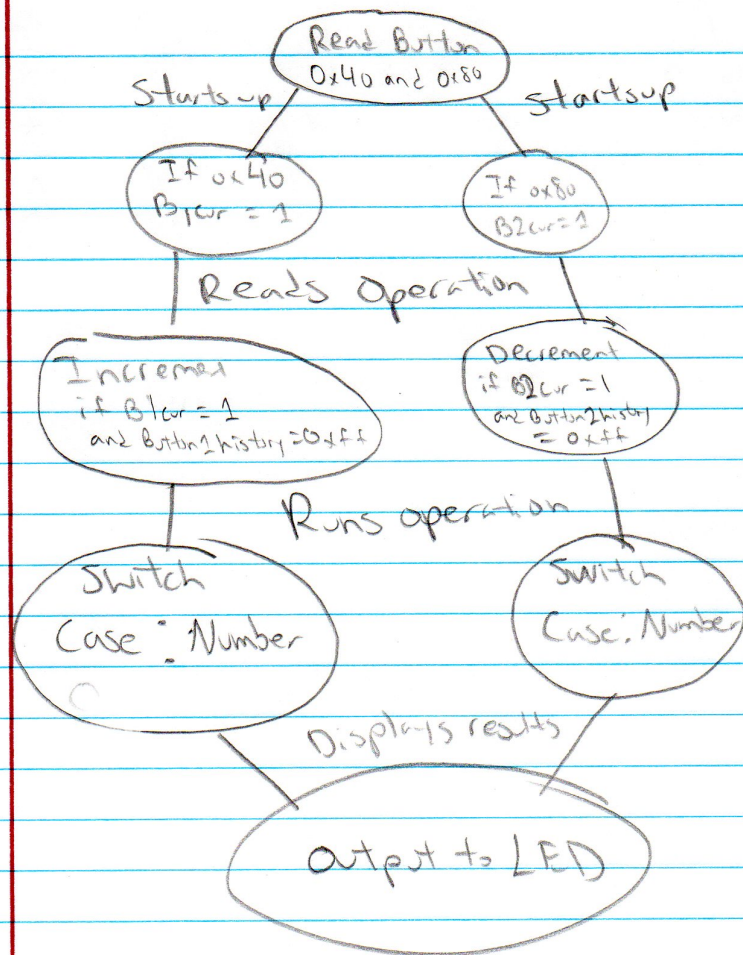 Read Button
0x40 and 0x80
Starts up
Startsup
If 0x40
B1cur = 1
If 0x80
B2cur = 1
Reads Operation
Incremen
if B1cur = 1
and Button1history = 0xff
Decrement
if B2cur = 1
and Button2history
= 0xff
Runs operation
Switch
Case: Number
Switch
Case: Number
Displays results
Output to LED